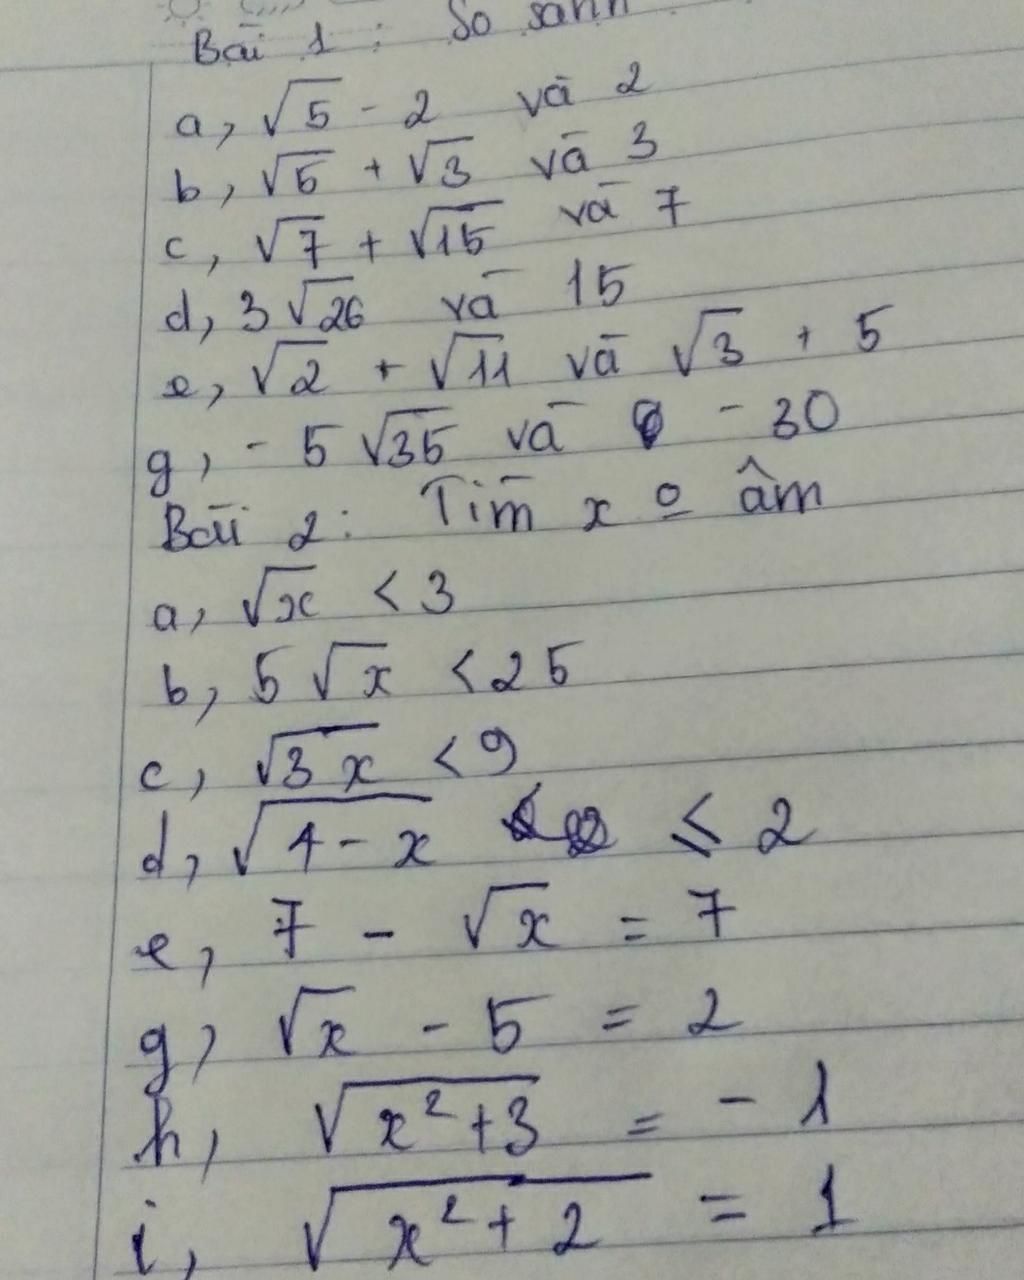 Bài 1 : So sánh
a, √5 - 2 và 2
b, √5 + √3 và 3
c, √7 + √15 và 7
d, 3√26 và 15
e, √2 + √11 và √3 + 5
g, - 5√35 và - 30
Bài 2 : Tìm x o âm
a, √x < 3
b, 5√x < 25
c, √3x < 9
d, √4-x ≤ 2
e, 7 - √x = 7
g, √x - 5 = 2
h, √x²+3 = - 1
i, √x²+2 = 1